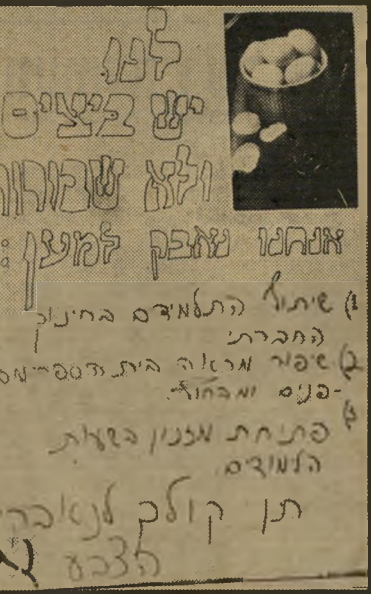 לנו
יש ביצים
ולא שבורות
אנחנו נאבק למען:
1) שיתוף התלמידם בחינוך
החברתי
2) שיפור מראה בית הספר מב
-פנים ומבחוץ.
3) פתיחת מזנון בשעות
הלמודים.
תן קולך
הצבע